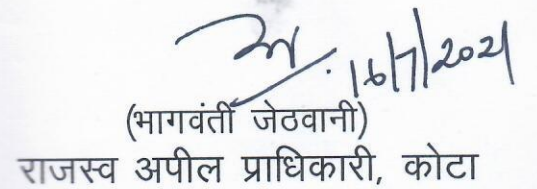 16/7/2021
(भागवंती जेठवानी)
राजस्व अपील प्राधिकारी, कोटा